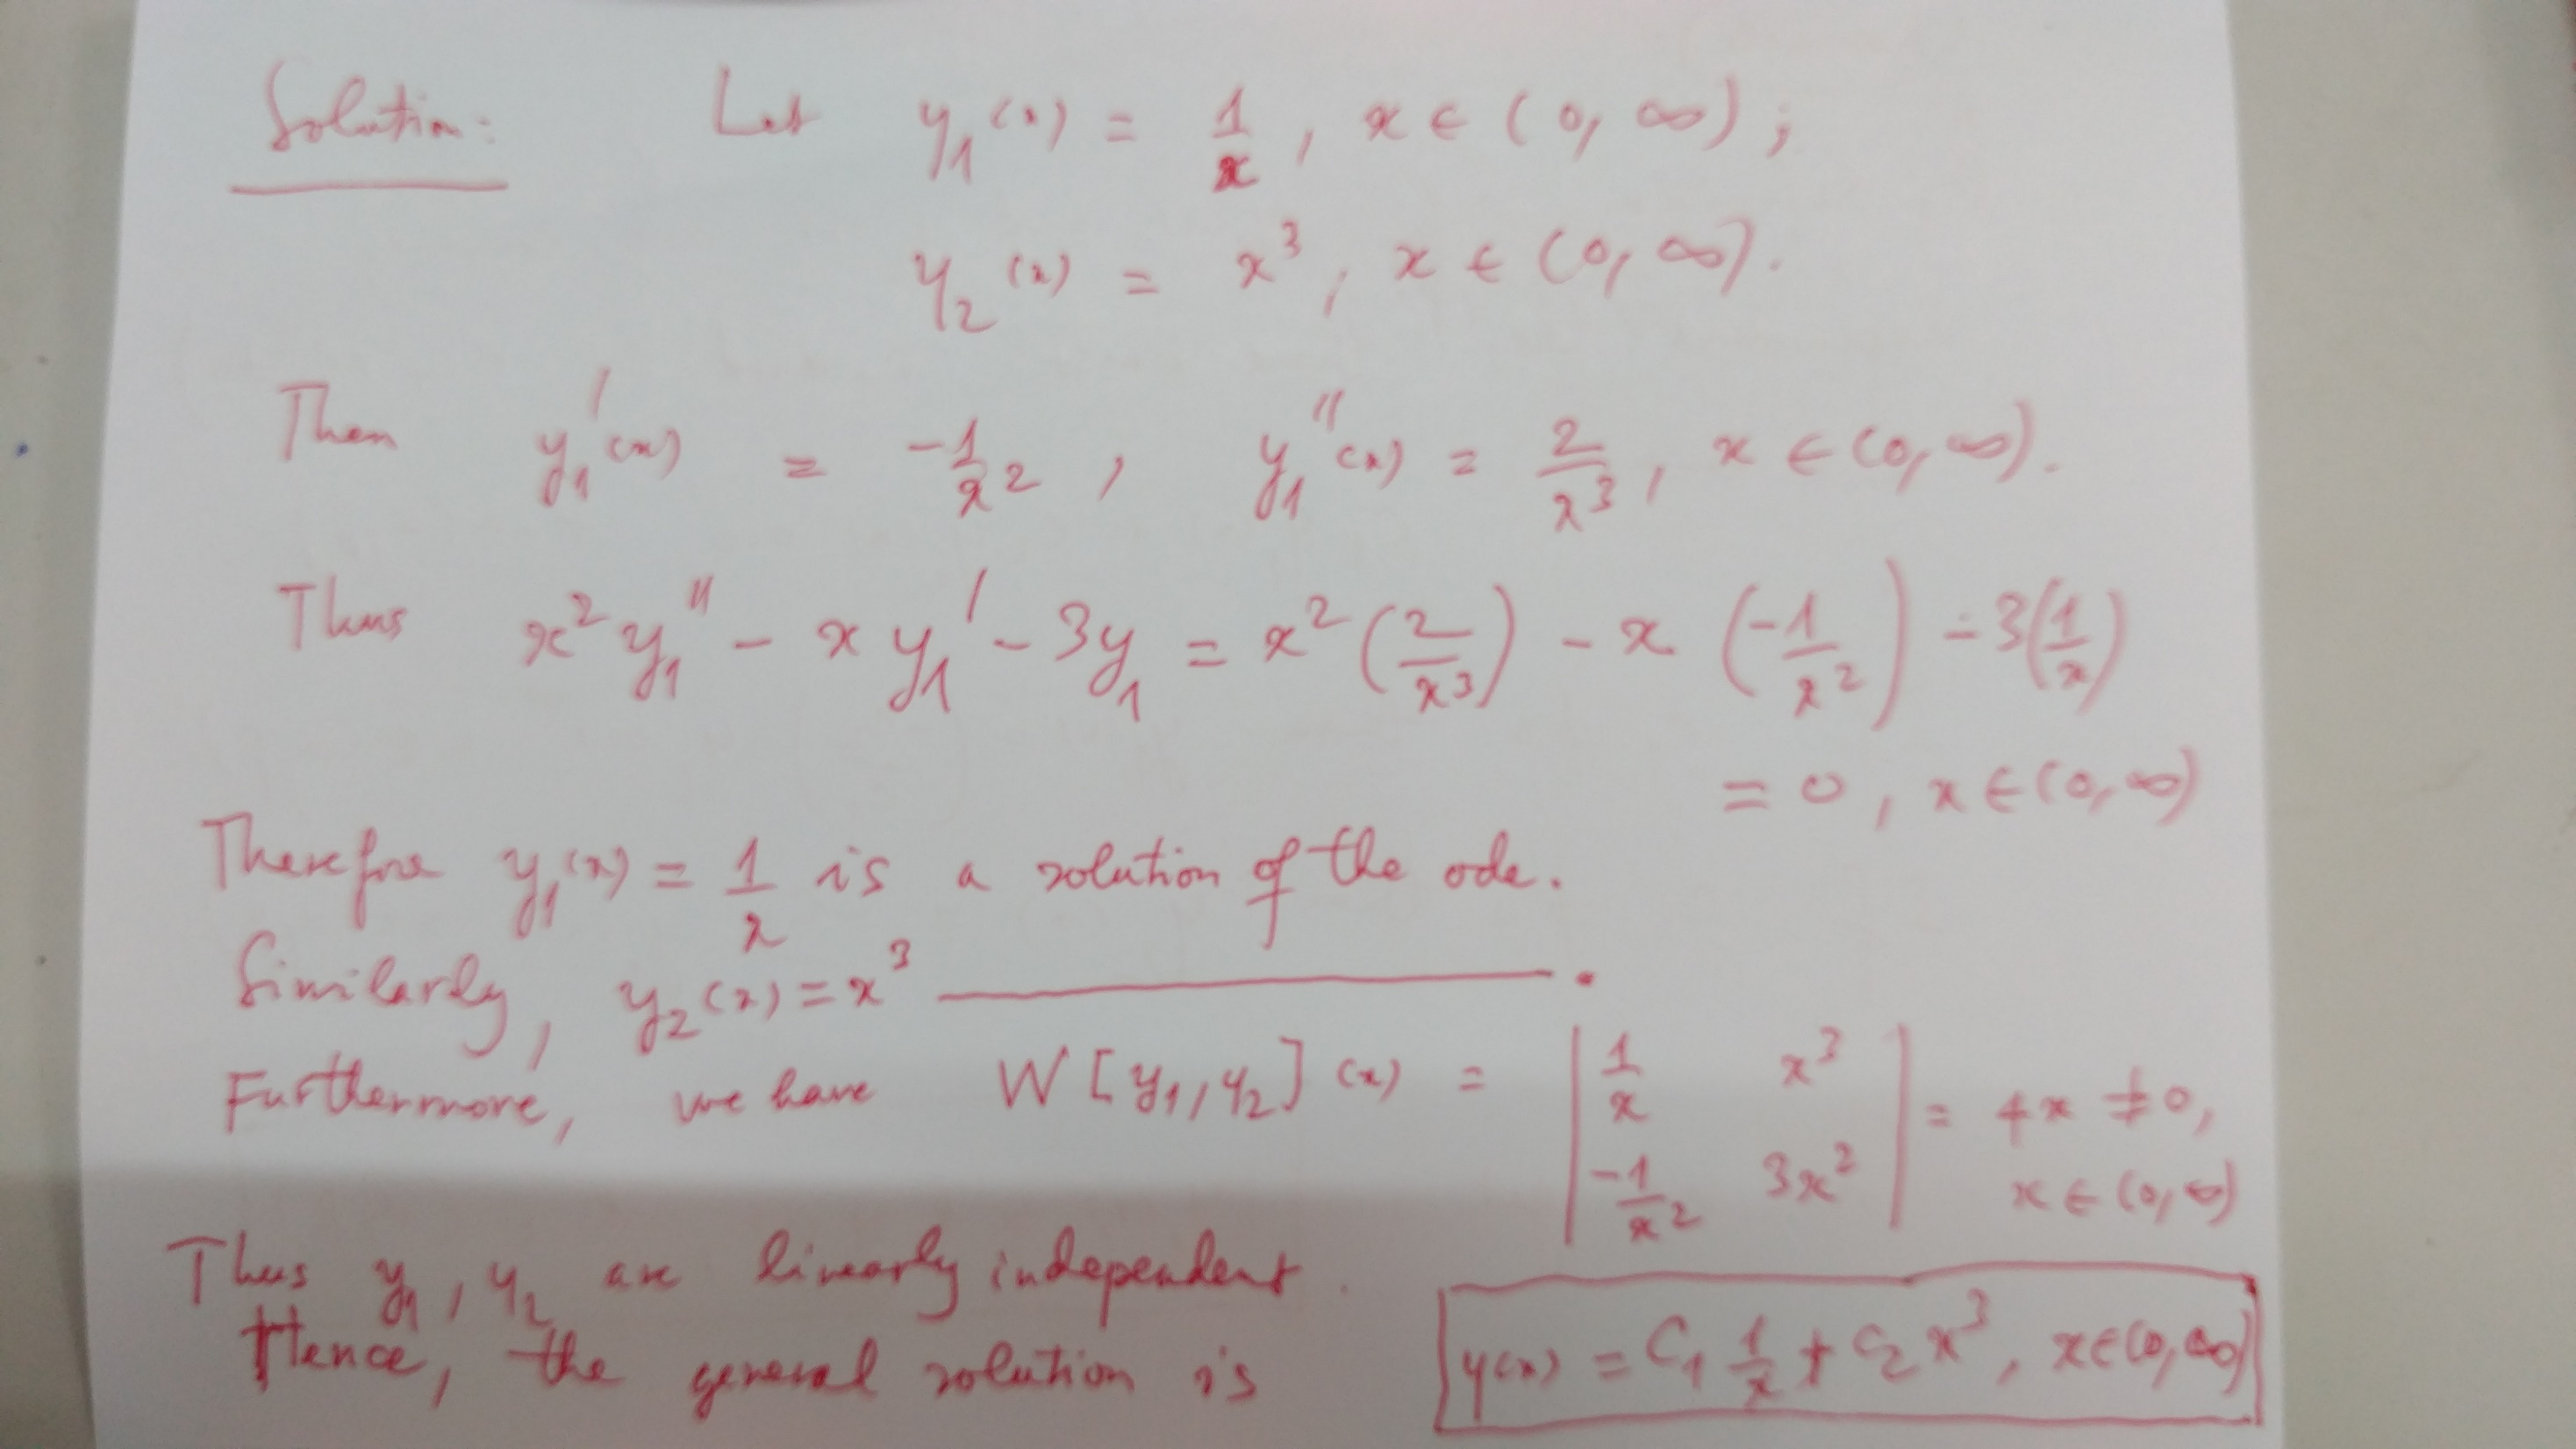 Solution: Let y₁(x) = 1/x, x ∈ (0, ∞);
y₂(x) = x³, x ∈ (0, ∞).
Then y₁'(x) = -1/x², y₁''(x) = 2/x³, x ∈ (0, ∞).
Thus x² y₁'' - x y₁' - 3y₁ = x² (2/x³) - x (-1/x²) - 3(1/x)
= 0, x ∈ (0, ∞)
Therefore y₁(x) = 1/x is a solution of the ode.
Similarly, y₂(x) = x³ ————————.
Furthermore, we have W[y₁, y₂](x) = | 1/x x³ ; -1/x² 3x² | = 4x ≠ 0,
x ∈ (0, ∞)
Thus y₁, y₂ are linearly independent.
Hence, the general solution is y(x) = C₁ 1/x + C₂ x³, x ∈ (0, ∞)